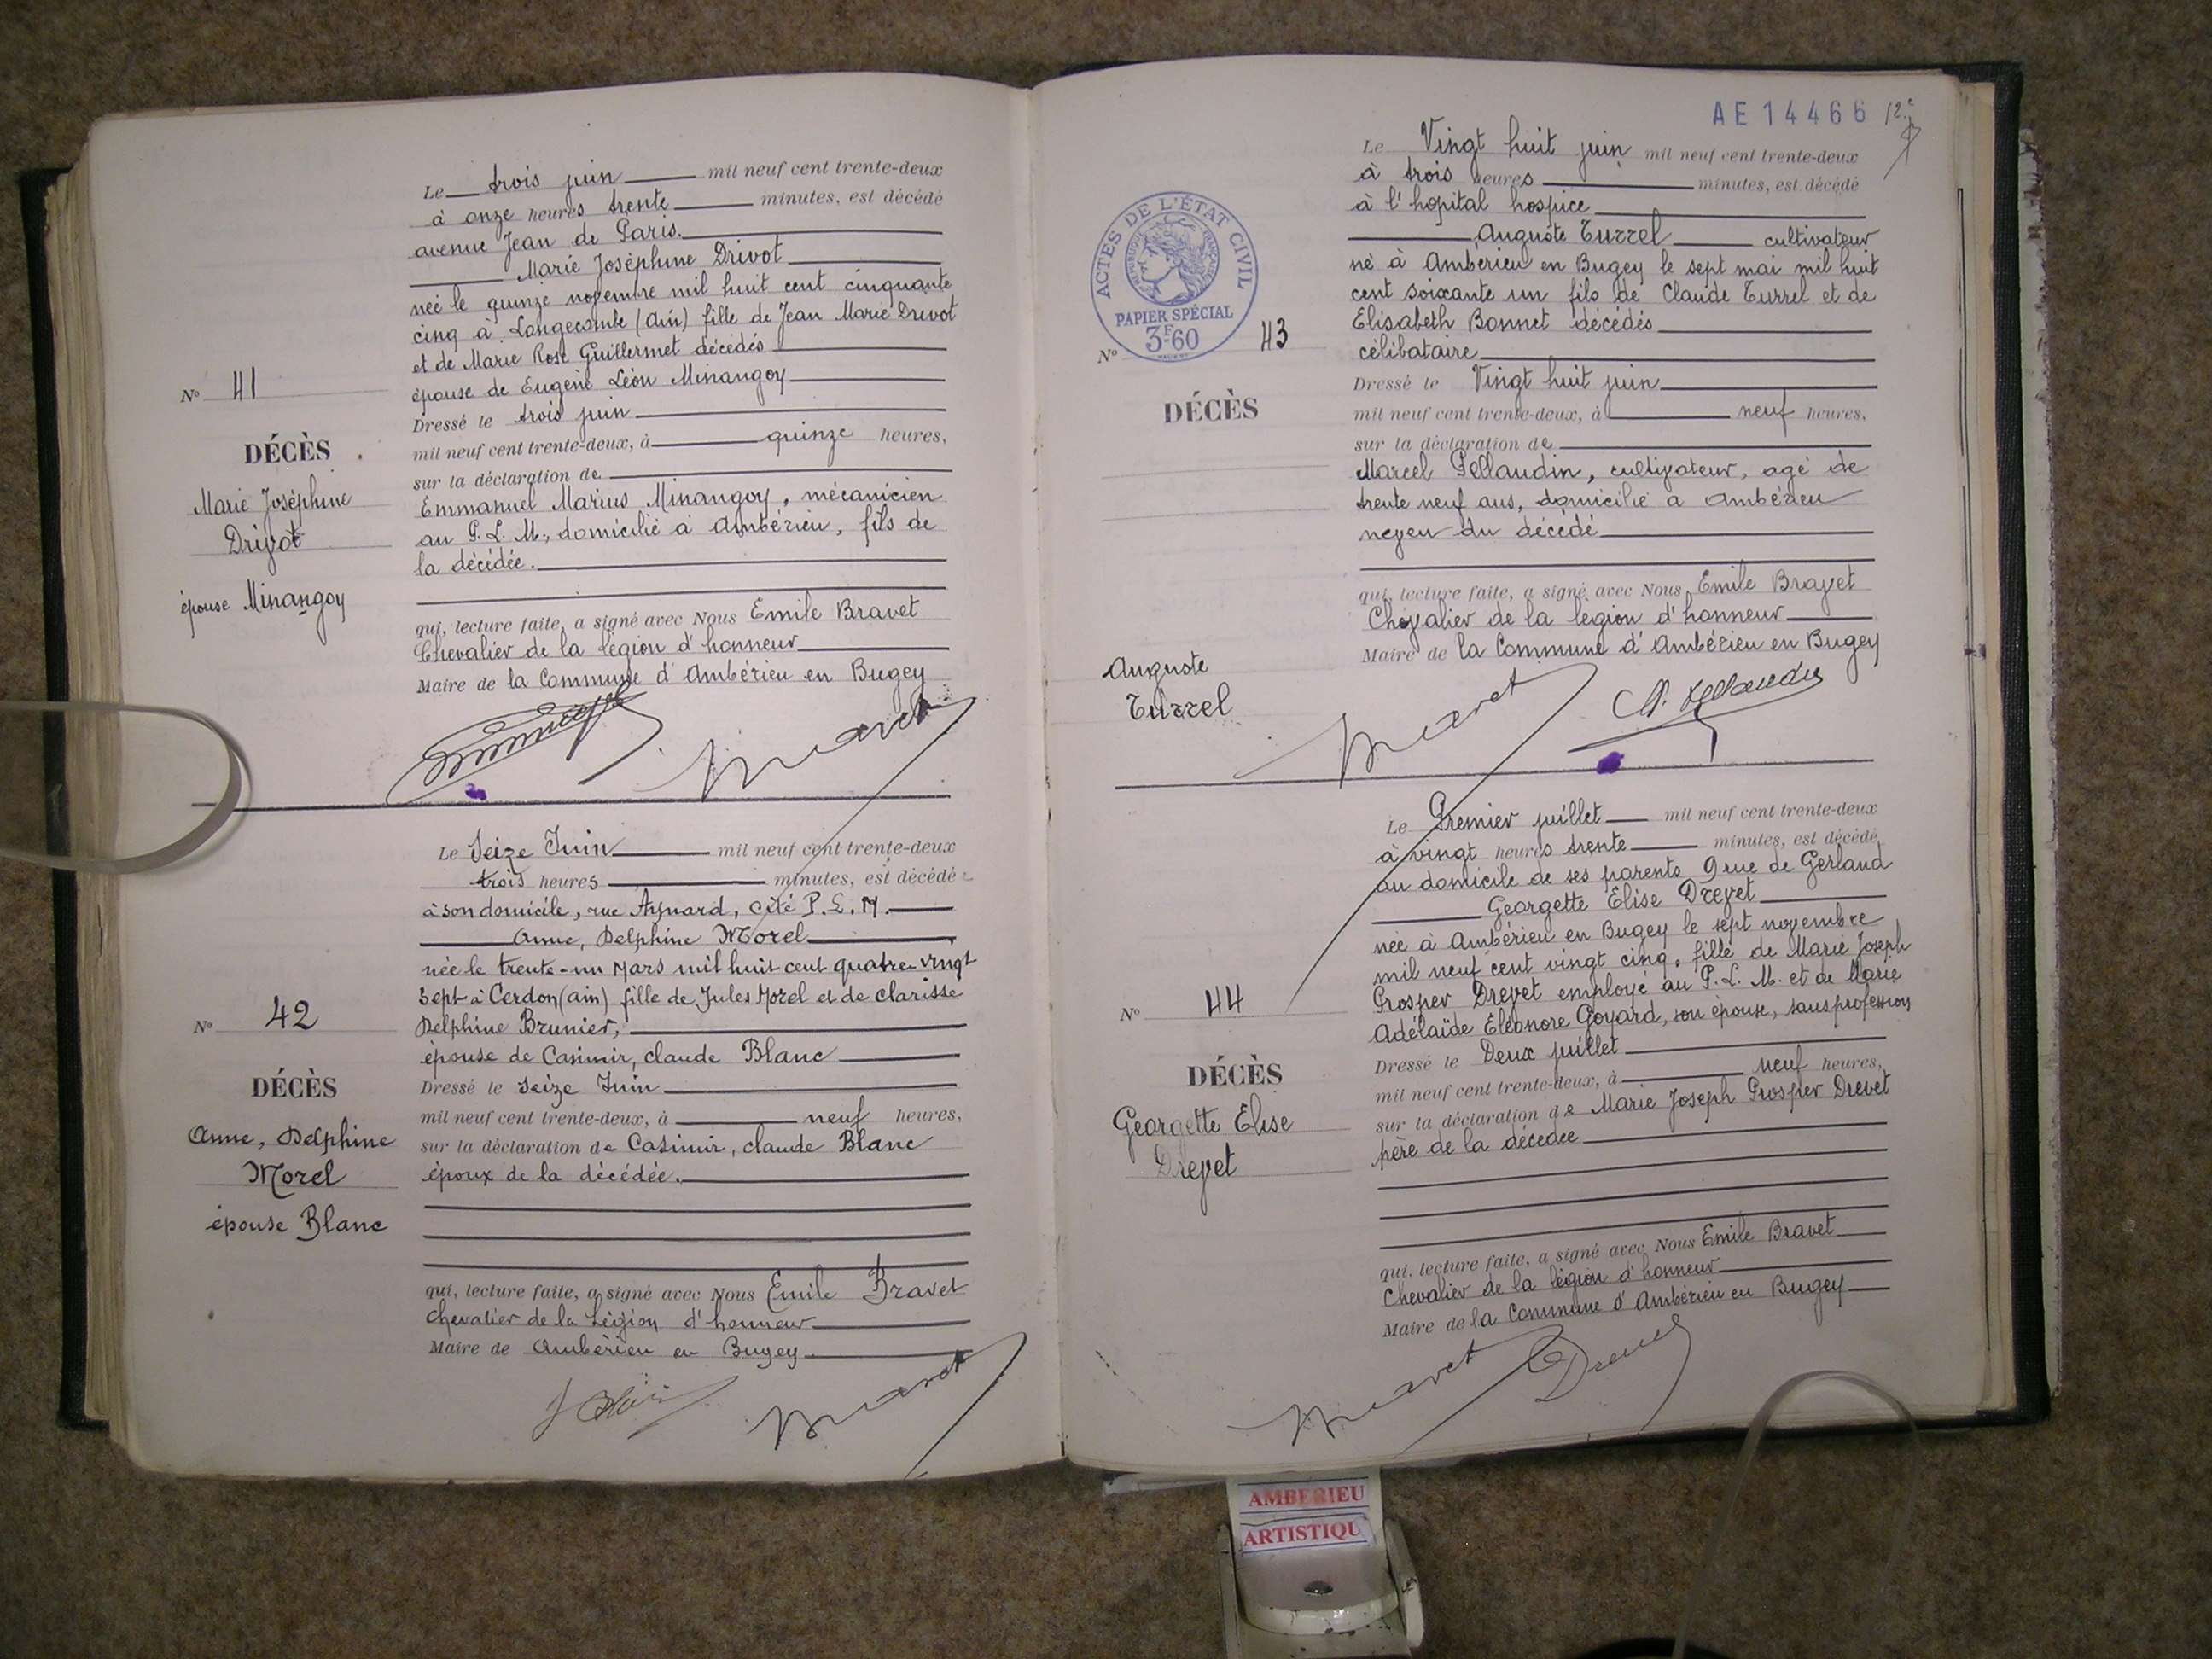 Le trois juin mil neuf cent trente-deux
à onze heures trente minutes, est décédé
avenue Jean de Paris.
Marie Joséphine Drivot
née le quinze novembre mil huit cent cinquante
cinq à Longecombe (Ain) fille de Jean Marie Drivot
et de Marie Rose Guillermet décédés
épouse de Eugène Léon Minangoy
Dressé le trois juin
mil neuf cent trente-deux, à quinze heures,
sur la déclaration de
Emmanuel Marius Minangoy, mécanicien
au P. L. M., domicilié à Ambérieu, fils de
la décédée.
qui, lecture faite, a signé avec Nous Emile Bravet
Chevalier de la légion d'honneur
Maire de la Commune d'Ambérieu en Bugey
No 41
DÉCÈS
Marie Joséphine
Drivot
épouse Minangoy
Bravet
Le Seize Juin mil neuf cent trente-deux
trois heures minutes, est décédée
à son domicile, rue Aynard, cité P. L. M.
Anne, Delphine Morel
née le trente-un Mars mil huit cent quatre-vingt
sept à Cerdon (ain) fille de Jules Morel et de clarisse
Delphine Brunier,
épouse de Casimir, claude Blanc
Dressé le Seize Juin
mil neuf cent trente-deux, à neuf heures,
sur la déclaration de Casimir, claude Blanc
époux de la décédée.
qui, lecture faite, a signé avec Nous Emile Bravet
Chevalier de la Légion d'honneur
Maire de Ambérieu en Bugey
No 42
DÉCÈS
Anne, Delphine
Morel
épouse Blanc
Bravet
AE 14466
Le Vingt huit juin mil neuf cent trente-deux
à trois heures minutes, est décédé
à l'hopital hospice
Auguste Turrel cultivateur
né à Ambérieu en Bugey le sept mai mil huit
cent soixante un fils de Claude Turrel et de
Elisabeth Bonnet décédés
célibataire
Dressé le Vingt huit juin
mil neuf cent trente-deux, à neuf heures,
sur la déclaration de
Marcel Pellaudin, cultivateur, agé de
trente neuf ans, domicilié à Ambérieu
neveu du décédé
qui, lecture faite, a signé avec Nous Emile Bravet
Chevalier de la légion d'honneur
Maire de la Commune d'Ambérieu en Bugey
ACTES DE L'ÉTAT CIVIL
RÉPUBLIQUE FRANÇAISE
PAPIER SPÉCIAL
3F60
No 43
DÉCÈS
Auguste
Turrel
Bravet M. Pellaudin
Le Premier juillet mil neuf cent trente-deux
à vingt heures trente minutes, est décédé
au domicile de ses parents 9 rue de Gerland
Georgette Elise Drevet
née à Ambérieu en Bugey le sept novembre
mil neuf cent vingt cinq, fille de Marie Joseph
Prosper Drevet employé au P. L. M. et de Marie
Adélaïde Eléonore Goyard, son épouse, sans profession
Dressé le Deux juillet
mil neuf cent trente-deux, à neuf heures,
sur la déclaration de Marie Joseph Prosper Drevet
père de la décédée
qui, lecture faite, a signé avec Nous Emile Bravet
Chevalier de la légion d'honneur
Maire de la Commune d'Ambérieu en Bugey
No 44
DÉCÈS
Georgette Elise
Drevet
Bravet Drevet
AMBERIEU
ARTISTIQU